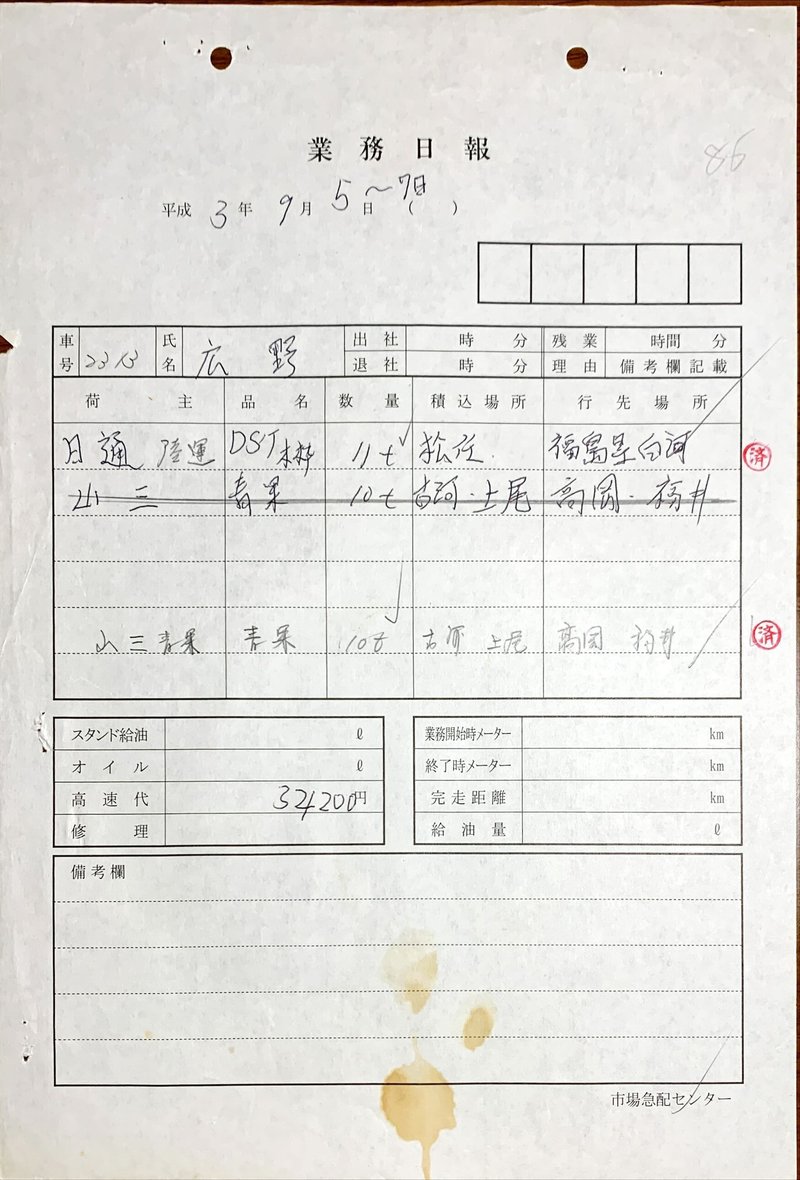 86
業務日報
平成 3 年 9 月 5 日 ～7日 ( )
車号 2313 氏名 広野 出社 時 分 残業 時間 分
退社 時 分 理由 備考欄記載
荷主 品名 数量 積込場所 行先場所
日通 陸運 DST 11t 松任 福島県白河
済
山三 青果 10t 古河・上尾 高岡・福井
山三青果 青果 10t 古河 上尾 高岡 福井
済
スタンド給油 ℓ 業務開始時メーター km
オイル ℓ 終了時メーター km
高速代 34200円 完走距離 km
修理 給油量 ℓ
備考欄
市場急配センター